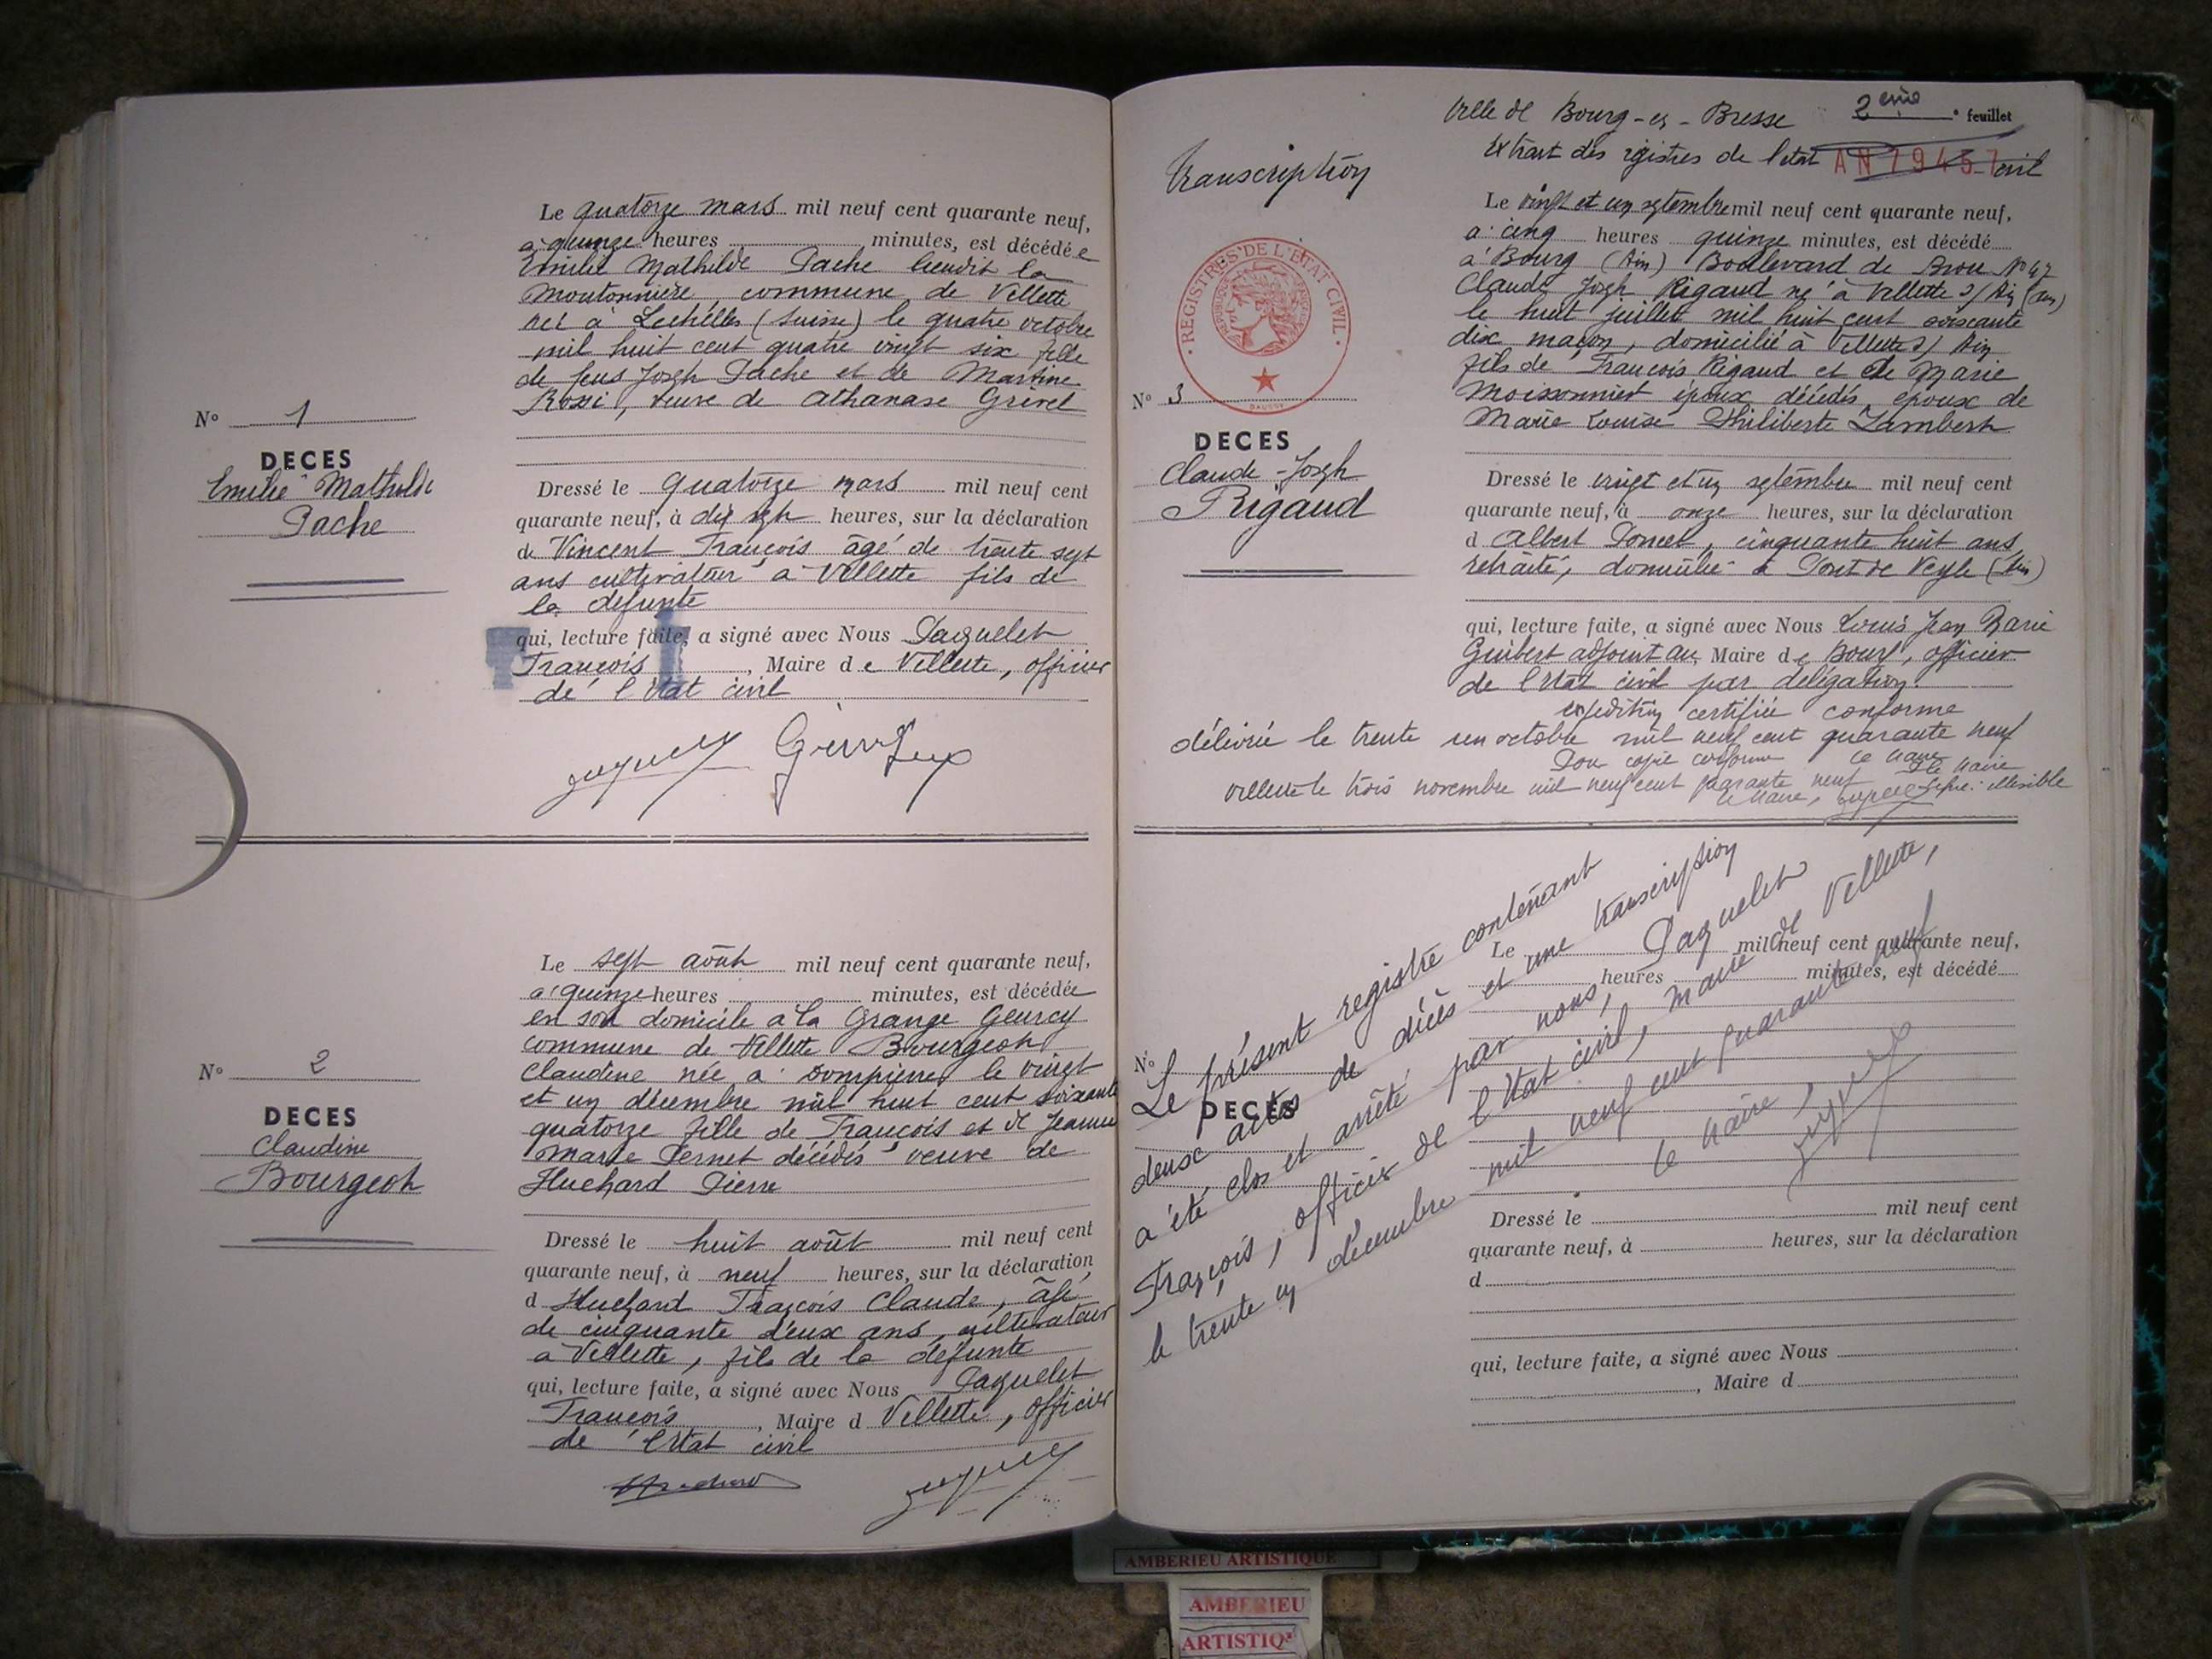 Le quatorze mars mil neuf cent quarante neuf,
à quinze heures minutes, est décédée
Emilie Mathilde Pache lieudit la
Moutonnière, commune de Villette
née à Lechelles (Suisse) le quatre octobre
mil huit cent quatre vingt six fille
de feus Joseph Pache et de Martine
Rossi, veuve de Athanase Grivel
N° 1
DECES
Emilie Mathilde
Pache
Dressé le quatorze mars mil neuf cent
quarante neuf, à dix sept heures, sur la déclaration
de Vincent François âgé de trente sept
ans cultivateur à Villette fils de
la défunte
qui, lecture faite, a signé avec Nous Paquelet
François, Maire de Villette, officier
de l'Etat civil
Le sept août mil neuf cent quarante neuf,
à quinze heures minutes, est décédée
en son domicile à la Grange Geurcy
commune de Villette Bourgeoh
Claudine née à Dompierre le vingt
et un décembre mil huit cent soixante
quatorze fille de François et de Jeanne
Marie Pernet décédés veuve de
Huchard Pierre
N° 2
DECES
Claudine
Bourgeoh
Dressé le huit août mil neuf cent
quarante neuf, à neuf heures, sur la déclaration
d Huchard François Claude, âgé
de cinquante deux ans, cultivateur
à Villette, fils de la défunte
qui, lecture faite, a signé avec Nous Paquelet
François, Maire d Villette, officier
de l'Etat civil
Huchard
Ville de Bourg-en-Bresse 2eme feuillet
Extrait des registres de l'état AN 79457 civil
Transcription
REGISTRES DE L'ÉTAT CIVIL
Le vingt et un septembre mil neuf cent quarante neuf,
à cinq heures quinze minutes, est décédé
à Bourg (Ain) Boulevard de Brou N° 47
Claude Joseph Rigaud né à Villette s/ Ain (Ain)
le huit juillet mil huit cent soixante
dix maçon, domicilié à Villette s/ Ain
fils de François Rigaud et de Marie
Moissonnier époux décédés, époux de
Marie Louise Philiberte Lambert
N° 3
DECES
Claude-Joseph
Rigaud
Dressé le vingt et un septembre mil neuf cent
quarante neuf, à onze heures, sur la déclaration
d Albert Poncet, cinquante huit ans
retraité, domicilié à Pont de Veyle (Ain)
qui, lecture faite, a signé avec Nous Louis Jean Marie
Guibert adjoint au Maire de Bourg, officier
de l'Etat civil par délégation.
expédition certifiée conforme
délivrée le trente un octobre mil neuf cent quarante neuf
Pour copie conforme Le Maire
Villette le trois novembre mil neuf cent quarante neuf signé: illisible
Le Maire,
Le présent registre contenant
deux actes de décès et une transcription
a été clos et arrêté par nous, Paquelet
François, officier de l'Etat civil, maire de Villette,
le trente un décembre mil neuf cent quarante neuf
Le Maire,
Le mil neuf cent quarante neuf,
heures minutes, est décédé
N°
DECES
Dressé le mil neuf cent
quarante neuf, à heures, sur la déclaration
d
qui, lecture faite, a signé avec Nous
, Maire d
AMBERIEU ARTISTIQUE
AMBERIEU
ARTISTIQ